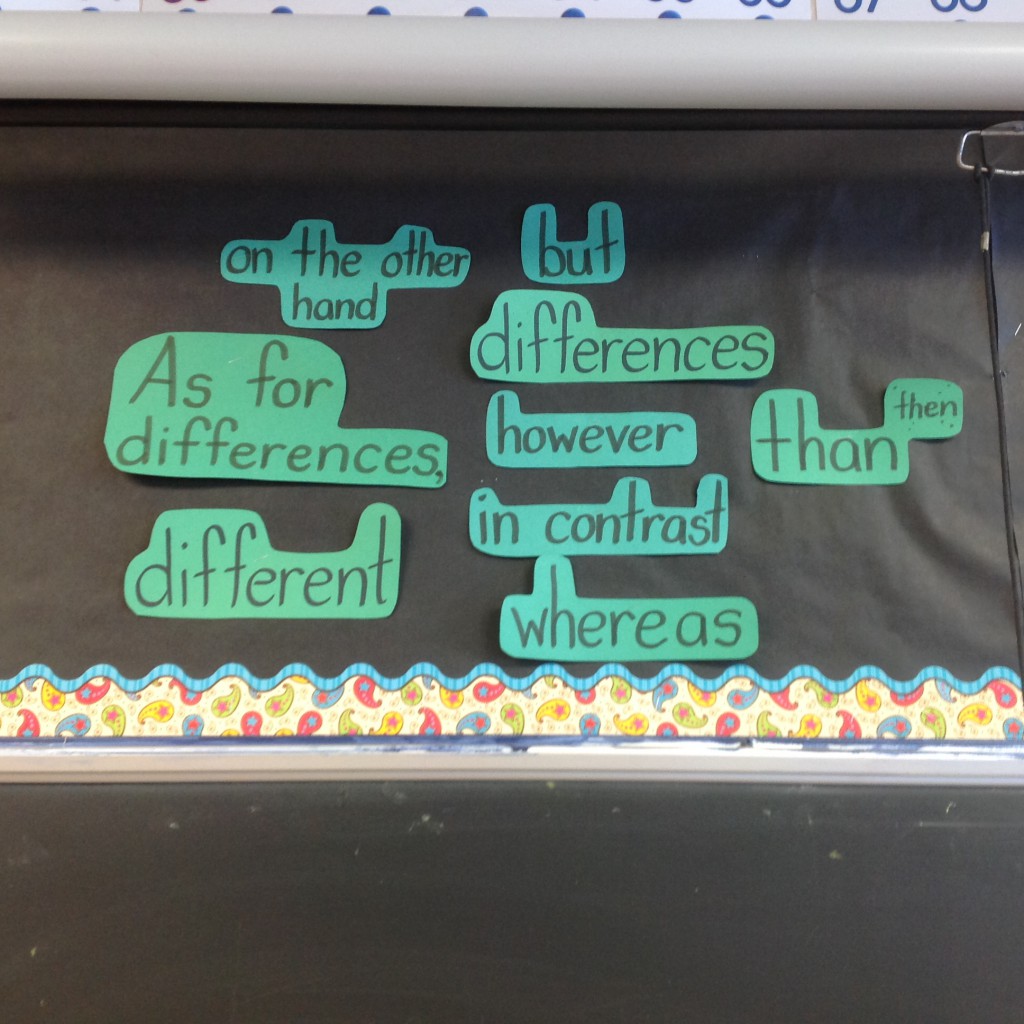 on the other
hand
but
differences
As for
differences,
however
than
then
in contrast
different
whereas